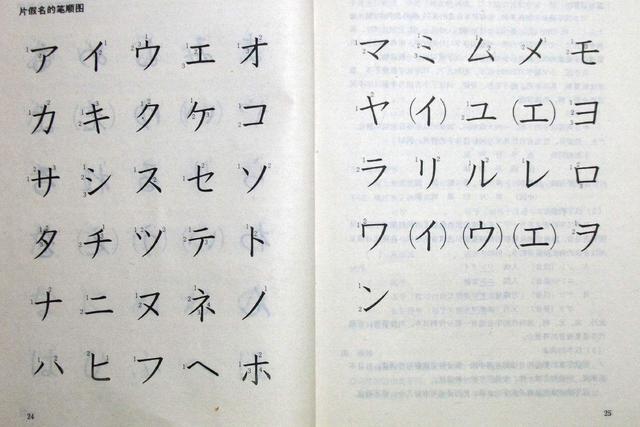 片假名的笔顺图
ア イ ウ エ オ
カ キ ク ケ コ
サ シ ス セ ソ
タ チ ツ テ ト
ナ ニ ヌ ネ ノ
ハ ヒ フ ヘ ホ
24
マ ミ ム メ モ
ヤ (イ) ユ (エ) ヨ
ラ リ ル レ ロ
ワ (イ) (ウ) (エ) ヲ
ン
25